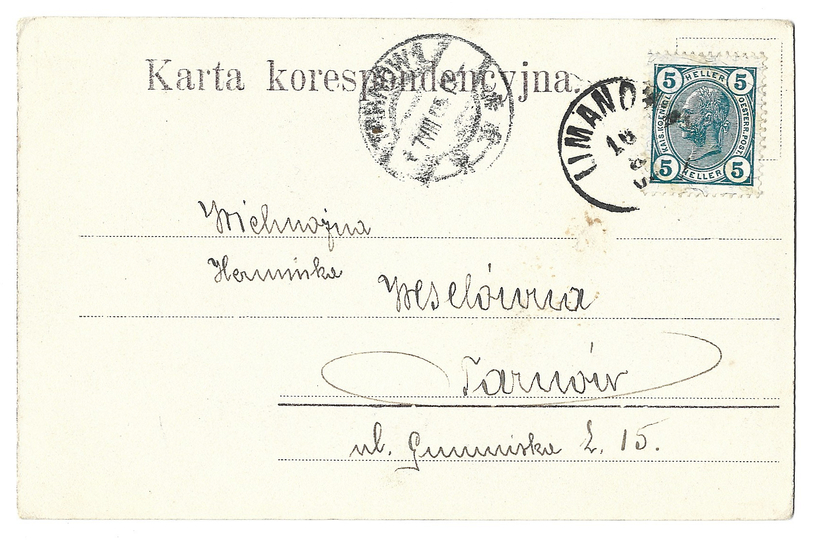 Karta korespondencyjna.
5 HELLER 5
KAIS. KOENIGL. OESTERR. POST.
5 HELLER 5
LIMANO
7 VIII
Wielmożna
Herminka
Weselówna
Tarnów
ul. Gumniska L. 15.